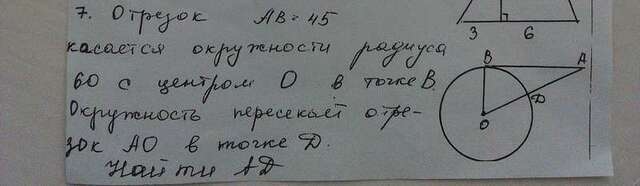 7. Отрезок AB = 45
касается окружности радиуса
60 с центром О в точке В.
Окружность пересекает отре-
зок АО в точке D.
Найти AD
3 6
B A
D
O